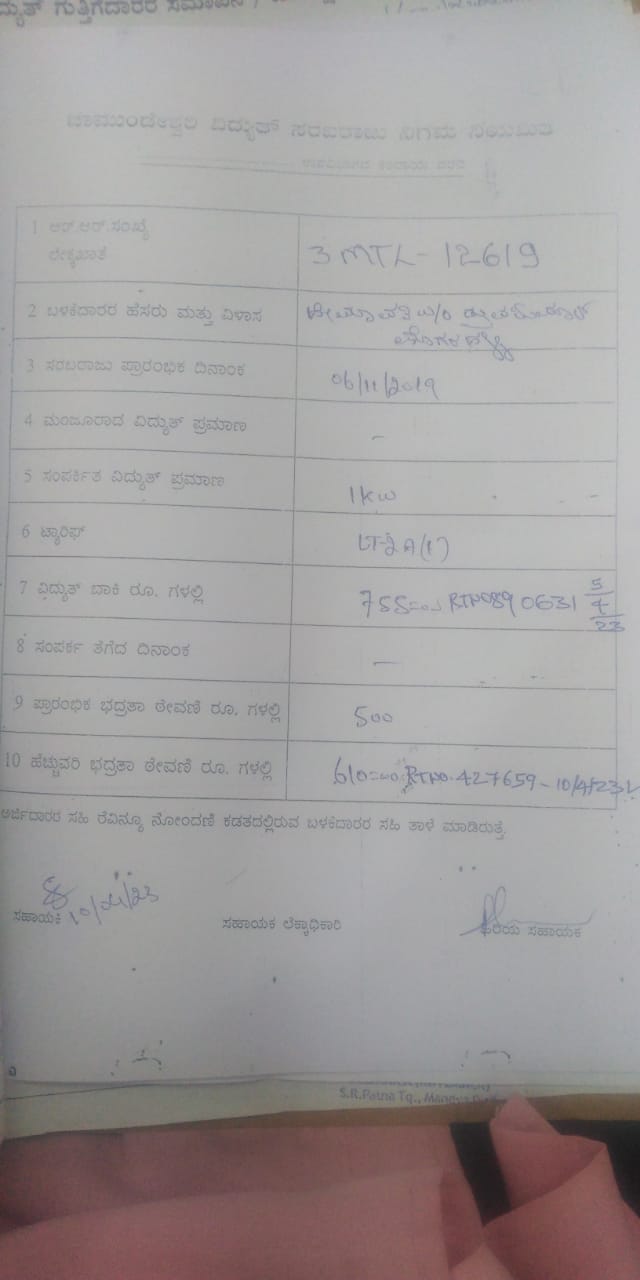 ಗುತ್ತಿಗೆದಾರರ
ಚಾಮುಂಡೇಶ್ವರಿ ವಿದ್ಯುತ್ ಸರಬರಾಜು ನಿಗಮ ನಿಯಮಿತ
1 ಆರ್.ಆರ್.ಸಂಖ್ಯೆ
3 MTL - 12619
2 ಬಳಕೆದಾರರ ಹೆಸರು ಮತ್ತು ವಿಳಾಸ
W/o
3 ಸರಬರಾಜು ಪ್ರಾರಂಭಿಕ ದಿನಾಂಕ
06/11/2019
4 ಮಂಜೂರಾದ ವಿದ್ಯುತ್ ಪ್ರಮಾಣ
-
5 ಸಂಪರ್ಕಿತ ವಿದ್ಯುತ್ ಪ್ರಮಾಣ
1 kw
6 ಟ್ಯಾರಿಫ್
LT-2 A(1)
7 ವಿದ್ಯುತ್ ಬಾಕಿ ರೂ. ಗಳಲ್ಲಿ
755=00 RTNO 890631 5/4/23
8 ಸಂಪರ್ಕ ತೆಗೆದ ದಿನಾಂಕ
-
9 ಪ್ರಾರಂಭಿಕ ಭದ್ರತಾ ಠೇವಣಿ ರೂ. ಗಳಲ್ಲಿ
500
10 ಹೆಚ್ಚುವರಿ ಭದ್ರತಾ ಠೇವಣಿ ರೂ. ಗಳಲ್ಲಿ
610=00 RTNO. 427659 - 10/4/23
ಅರ್ಜಿದಾರರ ಸಹಿ ರೆವಿನ್ಯೂ ನೋಂದಣಿ ಕಡತದಲ್ಲಿರುವ ಬಳಕೆದಾರರ ಸಹಿ ತಾಳೆ ಮಾಡಿರುತ್ತೆ
10/04/23
ಸಹಾಯಕ
ಸಹಾಯಕ ಲೆಕ್ಕಾಧಿಕಾರಿ
ಹಿರಿಯ ಸಹಾಯಕ
S.R.Patna Tq., Mandya